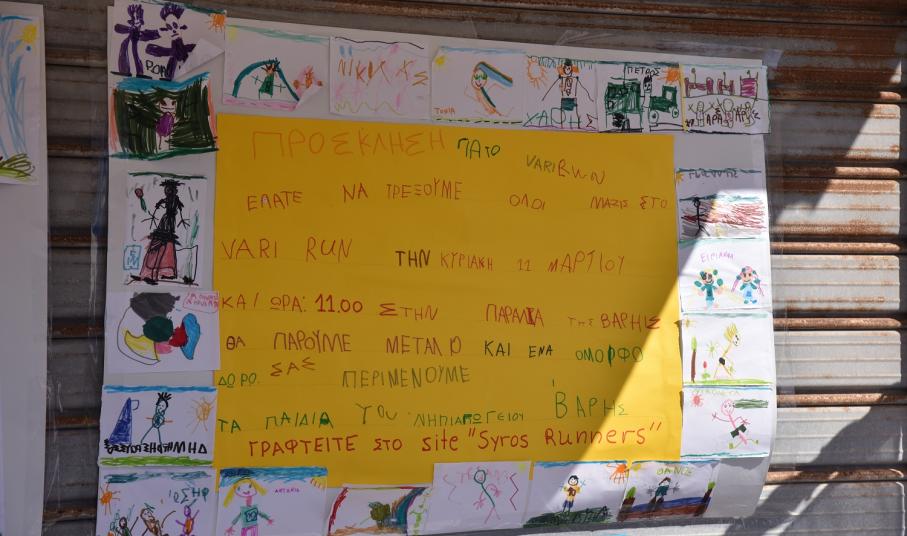 ΠΡΟΣΚΛΗΣΗ ΓΙΑ ΤΟ VARI RUN
ΕΛΑΤΕ ΝΑ ΤΡΕΞΟΥΜΕ ΟΛΟΙ ΜΑΖΙΣ ΣΤΟ
VARI RUN ΤΗΝ ΚΥΡΙΑΚΗ 11 ΜΑΡΤΙΟΥ
ΚΑΙ ΩΡΑ: 11.00 ΣΤΗΝ ΠΑΡΑΛΙΑ ΤΗΣ ΒΑΡΗΣ
ΘΑ ΠΑΡΟΥΜΕ ΜΕΤΑΛΙΟ ΚΑΙ ΕΝΑ ΟΜΟΡΦΟ
ΔΩΡΟ. ΣΑΣ ΠΕΡΙΜΕΝΟΥΜΕ
ΤΑ ΠΑΙΔΙΑ ΤΟΥ ΝΗΠΙΑΓΩΓΕΙΟΥ ΒΑΡΗΣ
ΓΡΑΦΤΕΙΤΕ ΣΤΟ site "Syros Runners"
ΤΟΝΙΑ
ΧΑΡΗΣ
ΠΕΤΡΟΣ
ΕΙΡΙΑΝΝΑ
ΘΑΝΟΣ